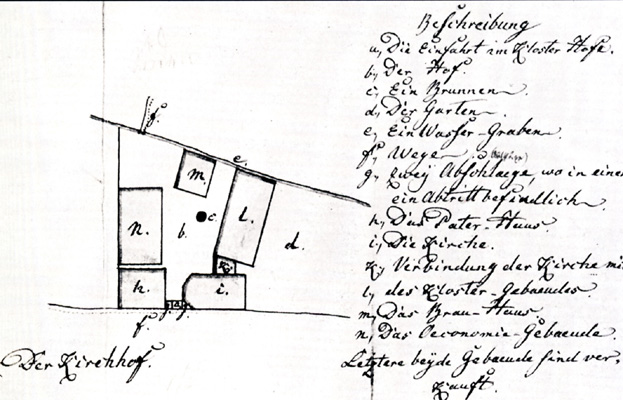 Beschreibung
a, Die Einfahrt im Kloster Hofe.
b, Der Hof.
c, Ein Brunnen
d, Der Garten
e, Ein Wasser-Graben
f, Wege
g, zwey Abschlaege, wo in einem
ein Abtritt befindlich
h, Das Pater-Haus
i, Die Kirche.
k, Verbindung der Kirche mit
l, des Kloster-Gebaeudes
m, Das Brau-Haus
n, Das Oeconomie-Gebaeude.
Letztere beyde Gebaeude sind ver-
kauft.
f.
e.
m.
c.
n.
b.
l.
d.
k.
h.
i.
g. g.
f.
Der Kirchhof.